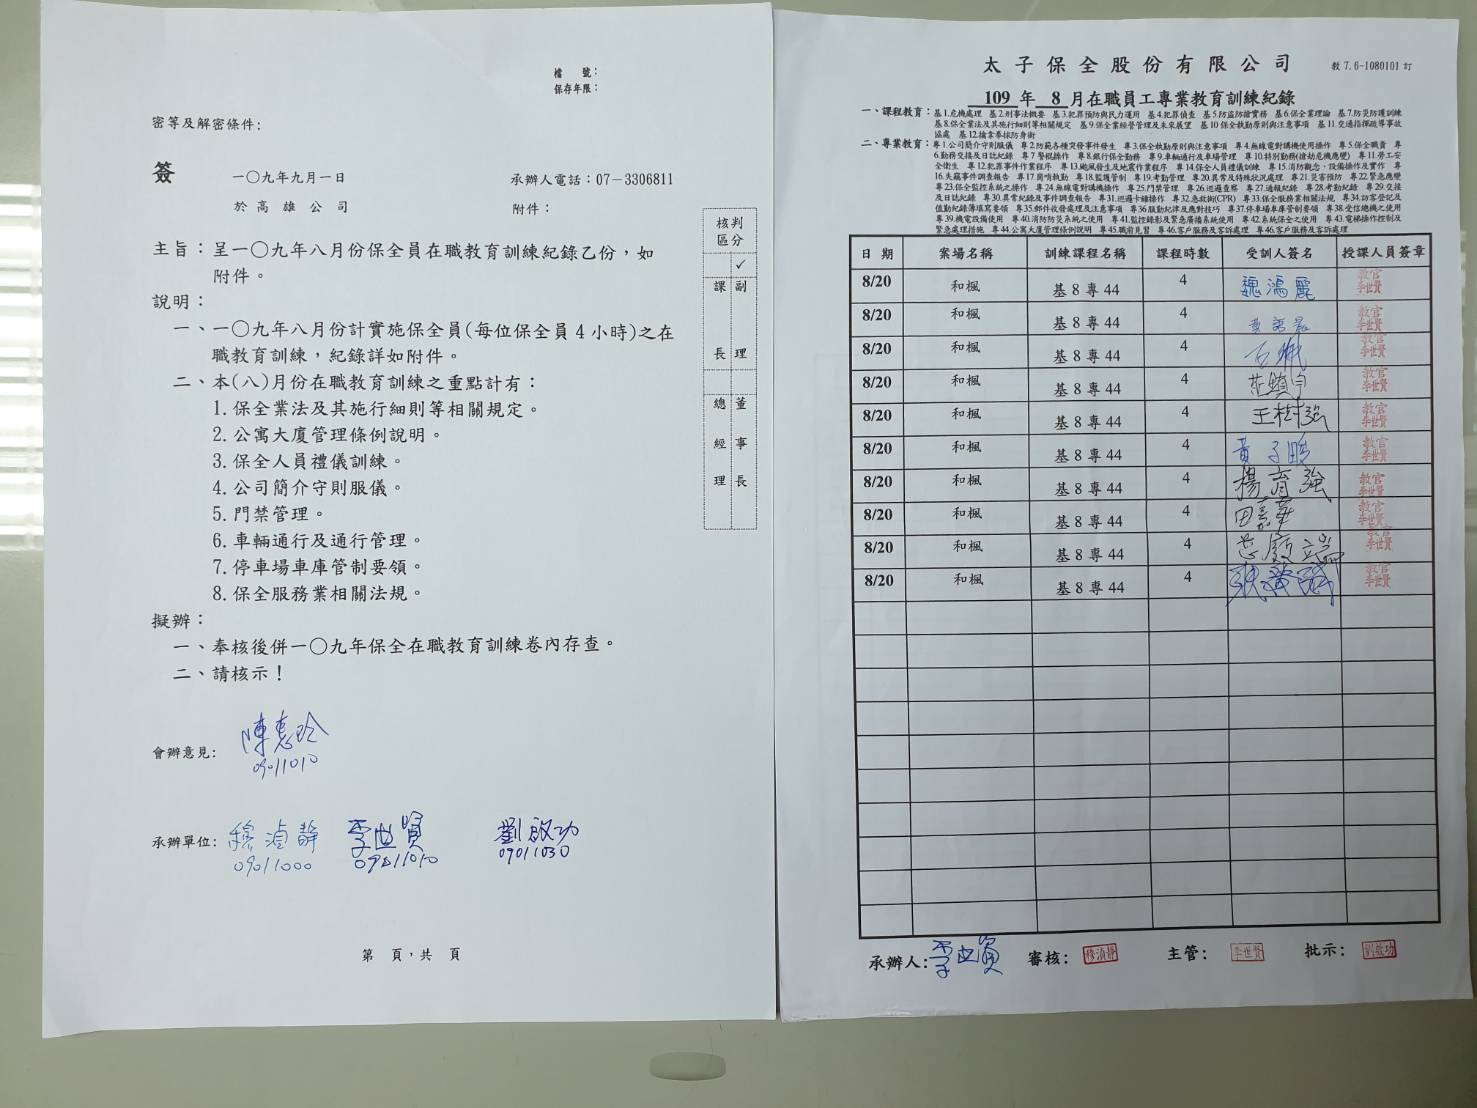 檔 號：
保存年限：
密等及解密條件：
簽 一〇九年九月一日 承辦人電話：07－3306811
於高雄公司 附件：
核判
區分
✓
課 副
長 理
總 董
經 事
理 長
主旨：呈一〇九年八月份保全員在職教育訓練紀錄乙份，如
附件。
說明：
一、一〇九年八月份計實施保全員(每位保全員4小時)之在
職教育訓練，紀錄詳如附件。
二、本(八)月份在職教育訓練之重點計有：
1.保全業法及其施行細則等相關規定。
2.公寓大廈管理條例說明。
3.保全人員禮儀訓練。
4.公司簡介守則服儀。
5.門禁管理。
6.車輛通行及通行管理。
7.停車場車庫管制要領。
8.保全服務業相關法規。
擬辦：
一、奉核後併一〇九年保全在職教育訓練卷內存查。
二、請核示！
會辦意見：陳惠玲
09011010
承辦單位：穆湞靜 李世賢 劉啟功
09011000 09011010 09011030
第 頁，共 頁
太子保全股份有限公司 教7.6-1080101訂
109 年 8 月在職員工專業教育訓練紀錄
一、課程教育：基1.危機處理 基2.刑事法概要 基3.犯罪預防與民力運用 基4.犯罪偵查 基5.防盜防搶實務 基6.保全業理論 基7.防災防護訓練
基8.保全業法及其施行細則等相關規定 基9.保全業經營管理及未來展望 基10保全執勤原則與注意事項 基11.交通指揮疏導事故
協處 基12.擒拿拳採防身術
二、專業教育：專1.公司簡介守則服儀 專2.防範各種突發事件發生 專3.保全執勤原則與注意事項 專4.無線電對講機使用操作 專5.保全職責 專
6.勤務交接及日誌紀錄 專7警棍操作 專8.銀行保全勤務 專9.車輛通行及車場管理 專10.特別勤務(搶劫危機應變) 專11.勞工安
全衛生 專12.犯罪事件作業程序 專13.颱風發生及地震作業程序 專14.保全人員禮儀訓練 專15.消防觀念、設備操作及實作 專
16.失竊事件調查報告 專17.簡哨執勤 專18.監護管制 專19.考勤管理 專20.異常及特殊狀況處理 專21.災害預防 專22.緊急應變
專23.保全監控系統之操作 專24.無線電對講機操作 專25.門禁管理 專26.巡邏查察 專27.通報紀錄 專28.考勤紀錄 專29.交接
及日誌紀錄 專30.異常紀錄及事件調查報告 專31.巡邏卡鐘操作 專32.急救術(CPR) 專33.保全服務業相關法規 專34.訪客登記及
值勤紀錄簿填寫要領 專35.郵件收發處理及注意事項 專36服勤紀律及應對技巧 專37.停車場車庫管制要領 專38.受信總機之使用
專39.機電設備使用 專40.消防防災系統之使用 專41.監控錄影及緊急廣播系統使用 專42.系統保全之使用 專43.電梯操作控制及
緊急處理措施 專44.公寓大廈管理條例說明 專45.職前見習 專46.客戶服務及客訴處理 專46.客戶服務及客訴處理
日 期 案場名稱 訓練課程名稱 課程時數 受訓人簽名 授課人員簽章
8/20 和楓 基8專44 4 魏鴻麗 教官李世賢
8/20 和楓 基8專44 4 教官李世賢
8/20 和楓 基8專44 4 教官李世賢
8/20 和楓 基8專44 4 教官李世賢
8/20 和楓 基8專44 4 王樹強 教官李世賢
8/20 和楓 基8專44 4 黃子鵬 教官李世賢
8/20 和楓 基8專44 4 楊育強 教官李世賢
8/20 和楓 基8專44 4 田嘉華 教官李世賢
8/20 和楓 基8專44 4 教官李世賢
8/20 和楓 基8專44 4 教官李世賢
承辦人：李世賢 審核：穆湞靜 主管：李世賢 批示：劉啟功